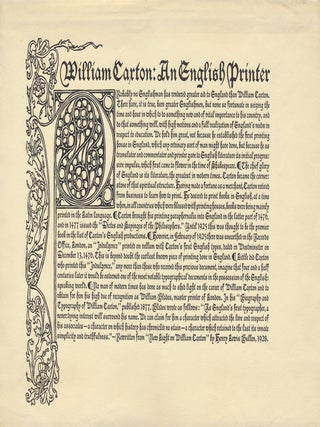 William Caxton: An English Printer
Probably no Englishman has rendered greater aid to England than William Caxton.
There have, it is true, been greater Englishmen, but none so fortunate in seizing the
time and hour in which to do something new and of vital importance to his country, and
to that something well, with high motives and a full realization of England's needs in
respect to education. We hold him great, not because he established the first printing
house in England, which any ordinary sort of man might have done, but because he as
translator and commentator and printer gave to English literature its initial progres-
sive impulse, which first came to flower in the time of Shakespeare. ¶ The chief glory
of England is its literature, the greatest in modern times. Caxton became the corner
stone of that spiritual structure. Having made a fortune as a merchant, Caxton retired
from business to learn how to print. He desired to print books in English, at a time
when in all countries which were blessed with printing houses, books were being mainly
printed in the Latin language. ¶ Caxton brought his printing paraphernalia into England in the latter part of 1476,
and in 1477 issued the "Dictes and Sayinges of the Philosophers." Until 1925 this was thought to be the premier
book in the list of Caxton's English productions. ¶ However, in February of 1925 there was unearthed in the Records
Office, London, an "Indulgence" printed on vellum with Caxton's first English types, dated in Westminster on
December 13, 1476. This is beyond doubt the earliest known piece of printing done in England. ¶ Little did Caxton
who printed this "Indulgence," or more than those who received this precious document, imagine that four and a half
centuries later it would be esteemed one of the most notable typographical monuments in the possession of the English-
speaking world. ¶ No man of modern times has done as much to shed light on the career of William Caxton and to
obtain for him his high due of recognition as William Blades, master printer of London. In his "Biography and
Typography of William Caxton," published 1877, Blades wrote as follows: "As England's first typographer, a
neverdying interest will surround his name. We can claim for him a character which attracted the love and respect of
his associates – a character on which history has chronicled no stain – a character which retained to the last its innate
simplicity and truthfulness." – Rewritten from "New Light on William Caxton" by Henry Lewis Bullen, 1928.